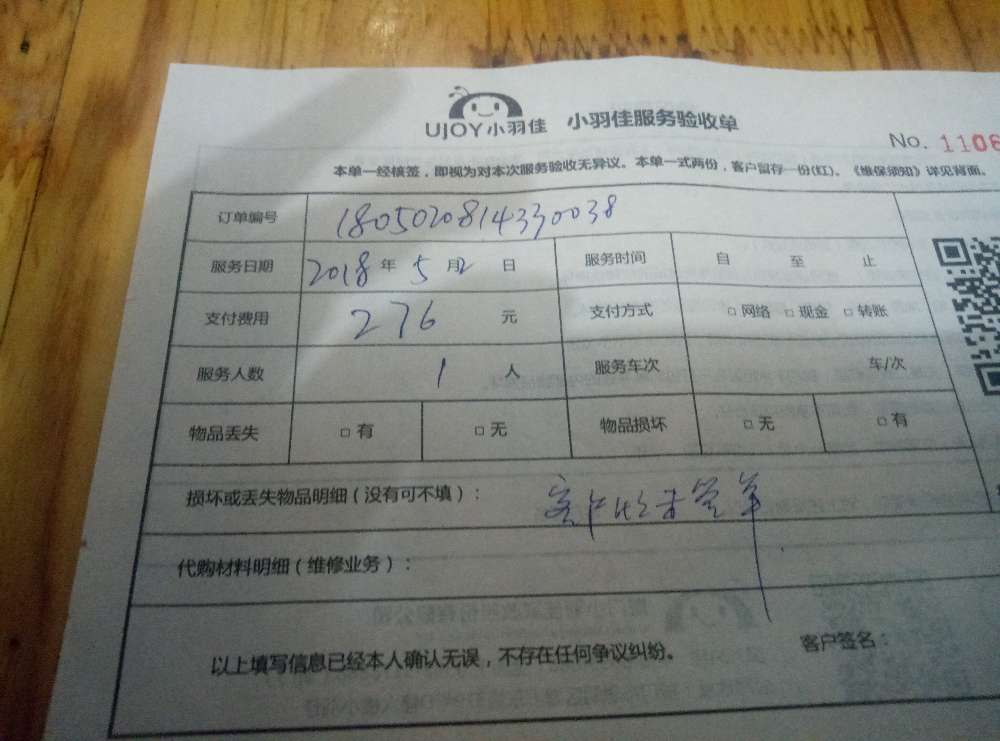 UJOY小羽佳 小羽佳服务验收单
No. 1106
本单一经核签，即视为对本次服务验收无异议。本单一式两份，客户留存一份(红)。《维保须知》详见背面。
订单编号 1805020814330038
服务日期 2018 年 5 月 2 日 服务时间 自 至 止
支付费用 276 元 支付方式 □ 网络 □ 现金 □ 转账
服务人数 1 人 服务车次 车/次
物品丢失 □ 有 □ 无 物品损坏 □ 无 □ 有
损坏或丢失物品明细（没有可不填）： 客户 未签单
代购材料明细（维修业务）：
以上填写信息已经本人确认无误，不存在任何争议纠纷。 客户签名：